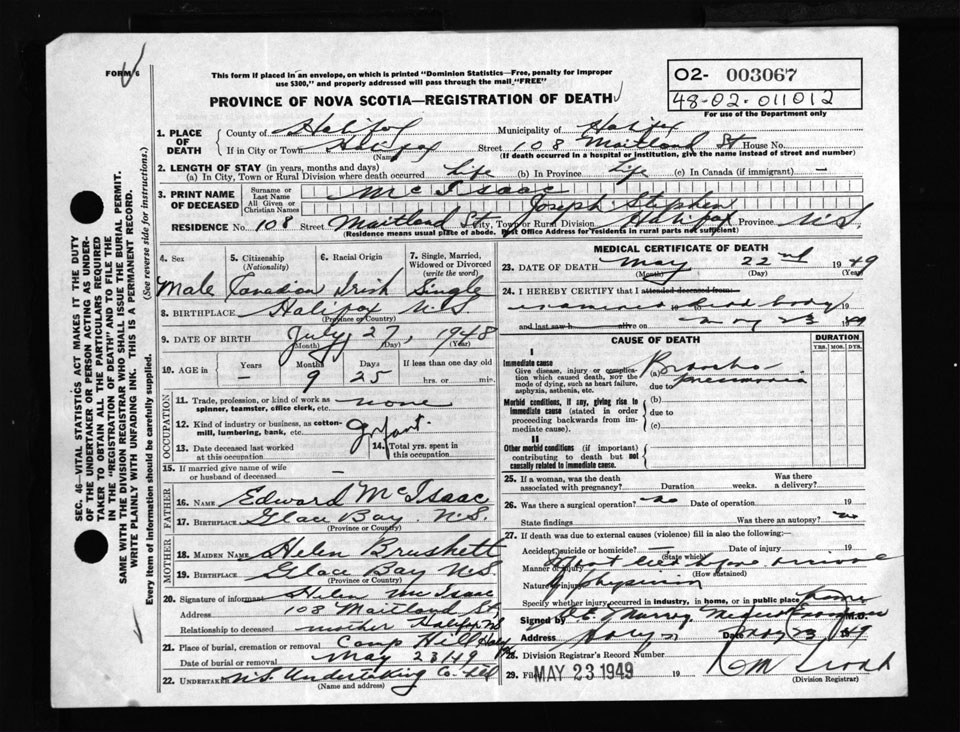 FORM 6
This form if placed in an envelope, on which is printed "Dominion Statistics—Free, penalty for improper
use $300," and properly addressed will pass through the mail "FREE"
PROVINCE OF NOVA SCOTIA—REGISTRATION OF DEATH
02- 003067
48-02-011012
For use of the Department only
SEC. 46—VITAL STATISTICS ACT MAKES IT THE DUTY
OF THE UNDERTAKER OR PERSON ACTING AS UNDER-
TAKER TO OBTAIN ALL THE PARTICULARS REQUIRED
IN THE "REGISTRATION OF DEATH" AND TO FILE THE
SAME WITH THE DIVISION REGISTRAR WHO SHALL ISSUE THE BURIAL PERMIT.
WRITE PLAINLY WITH UNFADING INK. THIS IS A PERMANENT RECORD.
Every item of information should be carefully supplied. (See reverse side for instructions.)
1. PLACE OF DEATH
County of Halifax Municipality of Halifax
If in City or Town Halifax Street 108 Maitland St House No.
(Name) (If death occurred in a hospital or institution, give the name instead of street and number)
2. LENGTH OF STAY (in years, months and days)
(a) In City, Town or Rural Division where death occurred Life (b) In Province Life (c) In Canada (if immigrant) —
3. PRINT NAME OF DECEASED
Surname or Last Name McIsaac
All Given or Christian Names Joseph Stephen
RESIDENCE No. 108 Street Maitland St, City, Town or Rural Division Halifax Province N.S.
(Residence means usual place of abode. Post Office Address for residents in rural parts not sufficient)
4. Sex 5. Citizenship (Nationality) 6. Racial Origin 7. Single, Married, Widowed or Divorced (write the word)
Male Canadian Irish Single
8. BIRTHPLACE Halifax N.S.
(Province or Country)
9. DATE OF BIRTH July 27, 1948
(Month) (Day) (Year)
10. AGE in Years Months Days If less than one day old
— 9 25 hrs. or min.
OCCUPATION
11. Trade, profession, or kind of work as spinner, teamster, office clerk, etc. none
12. Kind of industry or business, as cotton-mill, lumbering, bank, etc. Infant
13. Date deceased last worked at this occupation 14. Total yrs. spent in this occupation
15. If married give name of wife or husband of deceased —
FATHER
16. NAME Edward McIsaac
17. BIRTHPLACE Glace Bay N.S.
(Province or Country)
MOTHER
18. MAIDEN NAME Helen Brushett
19. BIRTHPLACE Glace Bay N.S.
(Province or Country)
20. Signature of informant Helen McIsaac
Address 108 Maitland St
Relationship to deceased mother Halifax NS
21. Place of burial, cremation or removal Camp Hill
Date of burial or removal May 23/49
22. UNDERTAKER N.S. Undertaking Co. Ltd
(Name and address)
MEDICAL CERTIFICATE OF DEATH
23. DATE OF DEATH May 22nd 1949
(Month) (Day) (Year)
24. I HEREBY CERTIFY that I attended deceased from
examined dead body
and last saw h alive on May 23 1949
CAUSE OF DEATH DURATION
YRS. MOS. DYS.
I
Immediate cause
Give disease, injury or complication which caused death, not the mode of dying, such as heart failure, asphyxia, asthenia, etc.
(a) Broncho-
due to pneumonia
Morbid conditions, if any, giving rise to immediate cause (stated in order proceeding backwards from immediate cause).
(b)
due to
(c)
II
Other morbid conditions (if important) contributing to death but not causally related to immediate cause.
25. If a woman, was the death associated with pregnancy? Duration weeks. Was there a delivery?
26. Was there a surgical operation? no Date of operation 19
State findings Was there an autopsy? no
27. If death was due to external causes (violence) fill in also the following:—
Accident, suicide or homicide? — Date of injury 19
(State which)
Manner of injury died before arrival
(How sustained)
Nature of injury of physician
Specify whether injury occurred in industry, in home, or in public place home
Signed by Medical Examiner M.D.
Address Date May 23 1949
28. Division Registrar's Record Number
29. Filed MAY 23 1949
(Division Registrar)